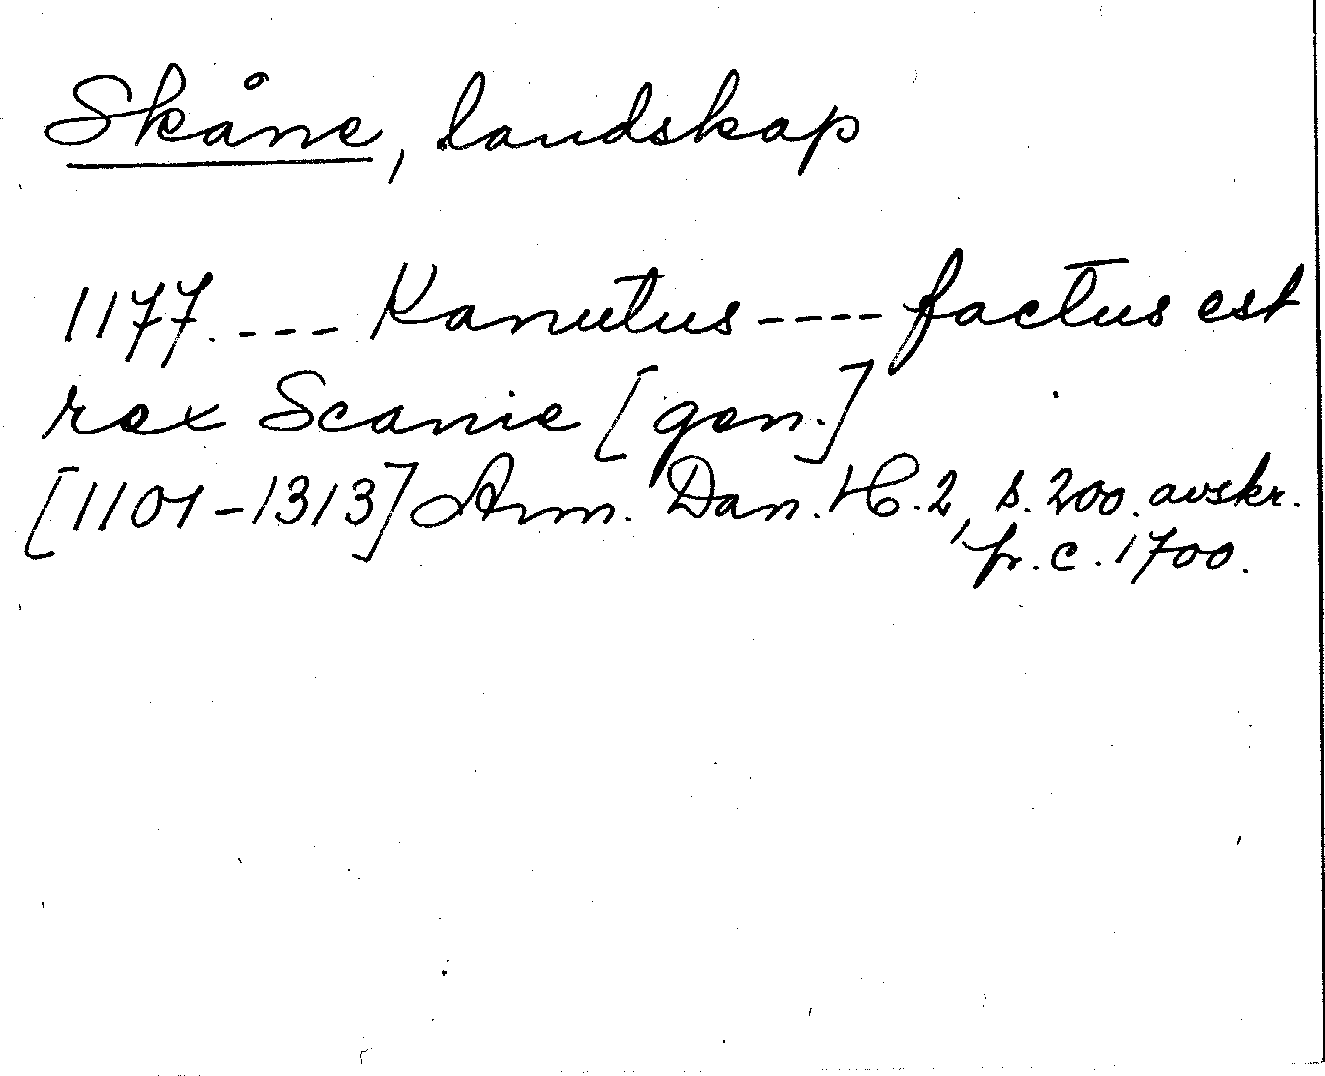 Skåne, landskap
1177. --- Kanutus ---- factus est
rex Scanie [gen.]
[1101-1313] Ann. Dan. H. 2, s. 200. avskr.
fr. c. 1700.